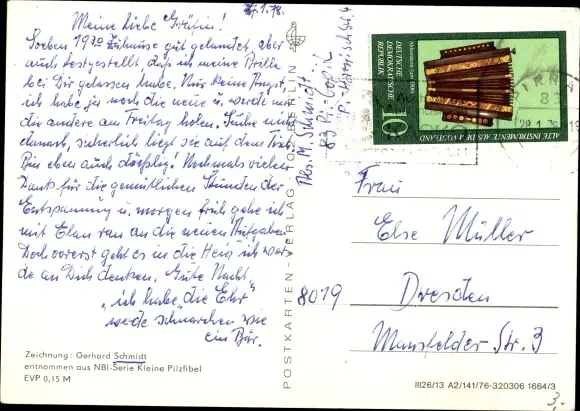 27.1.78.
Meine liebe Gräfin!
Soeben 19³⁰ Zuhause gut gelandet, aber
auch festgestellt, daß ich meine Brille
bei Dir gelassen habe. Nur keine Angst
ich habe ja noch die neue u. werde mir
die andere am Freitag holen. Suche nicht
danach, sicherlich liegt sie auf dem Tisch
Bin eben auch dösig! Nochmals vielen
Dank für die gemütlichen Stunden der
Entspannung u. morgen früh gehe ich
mit Elan ran an die neuen Aufgaben
Doch vorerst geht es in die Heia, ich wer-
de an Dich denken. Gute Nacht,
"ich habe die Ehr"
werde schnarchen wie
ein Bär.
Zeichnung: Gerhard Schmidt
entnommen aus NBI-Serie Kleine Pilzfibel
EVP 0,15 M
POSTKARTEN VERLAG BERLIN
Abs. M. Schmidt
83 Pirna-Cop.
ALTE INSTRUMENTE AUS DEM VOGTLAND
DEUTSCHE
DEMOKRATISCHE
REPUBLIK
10
PIRNA
83
28.1.78
Frau
Else Müller
8019 Dresden
Mansfelder Str. 3
III26/13 A2/141/76-320306 1664/3
3,-